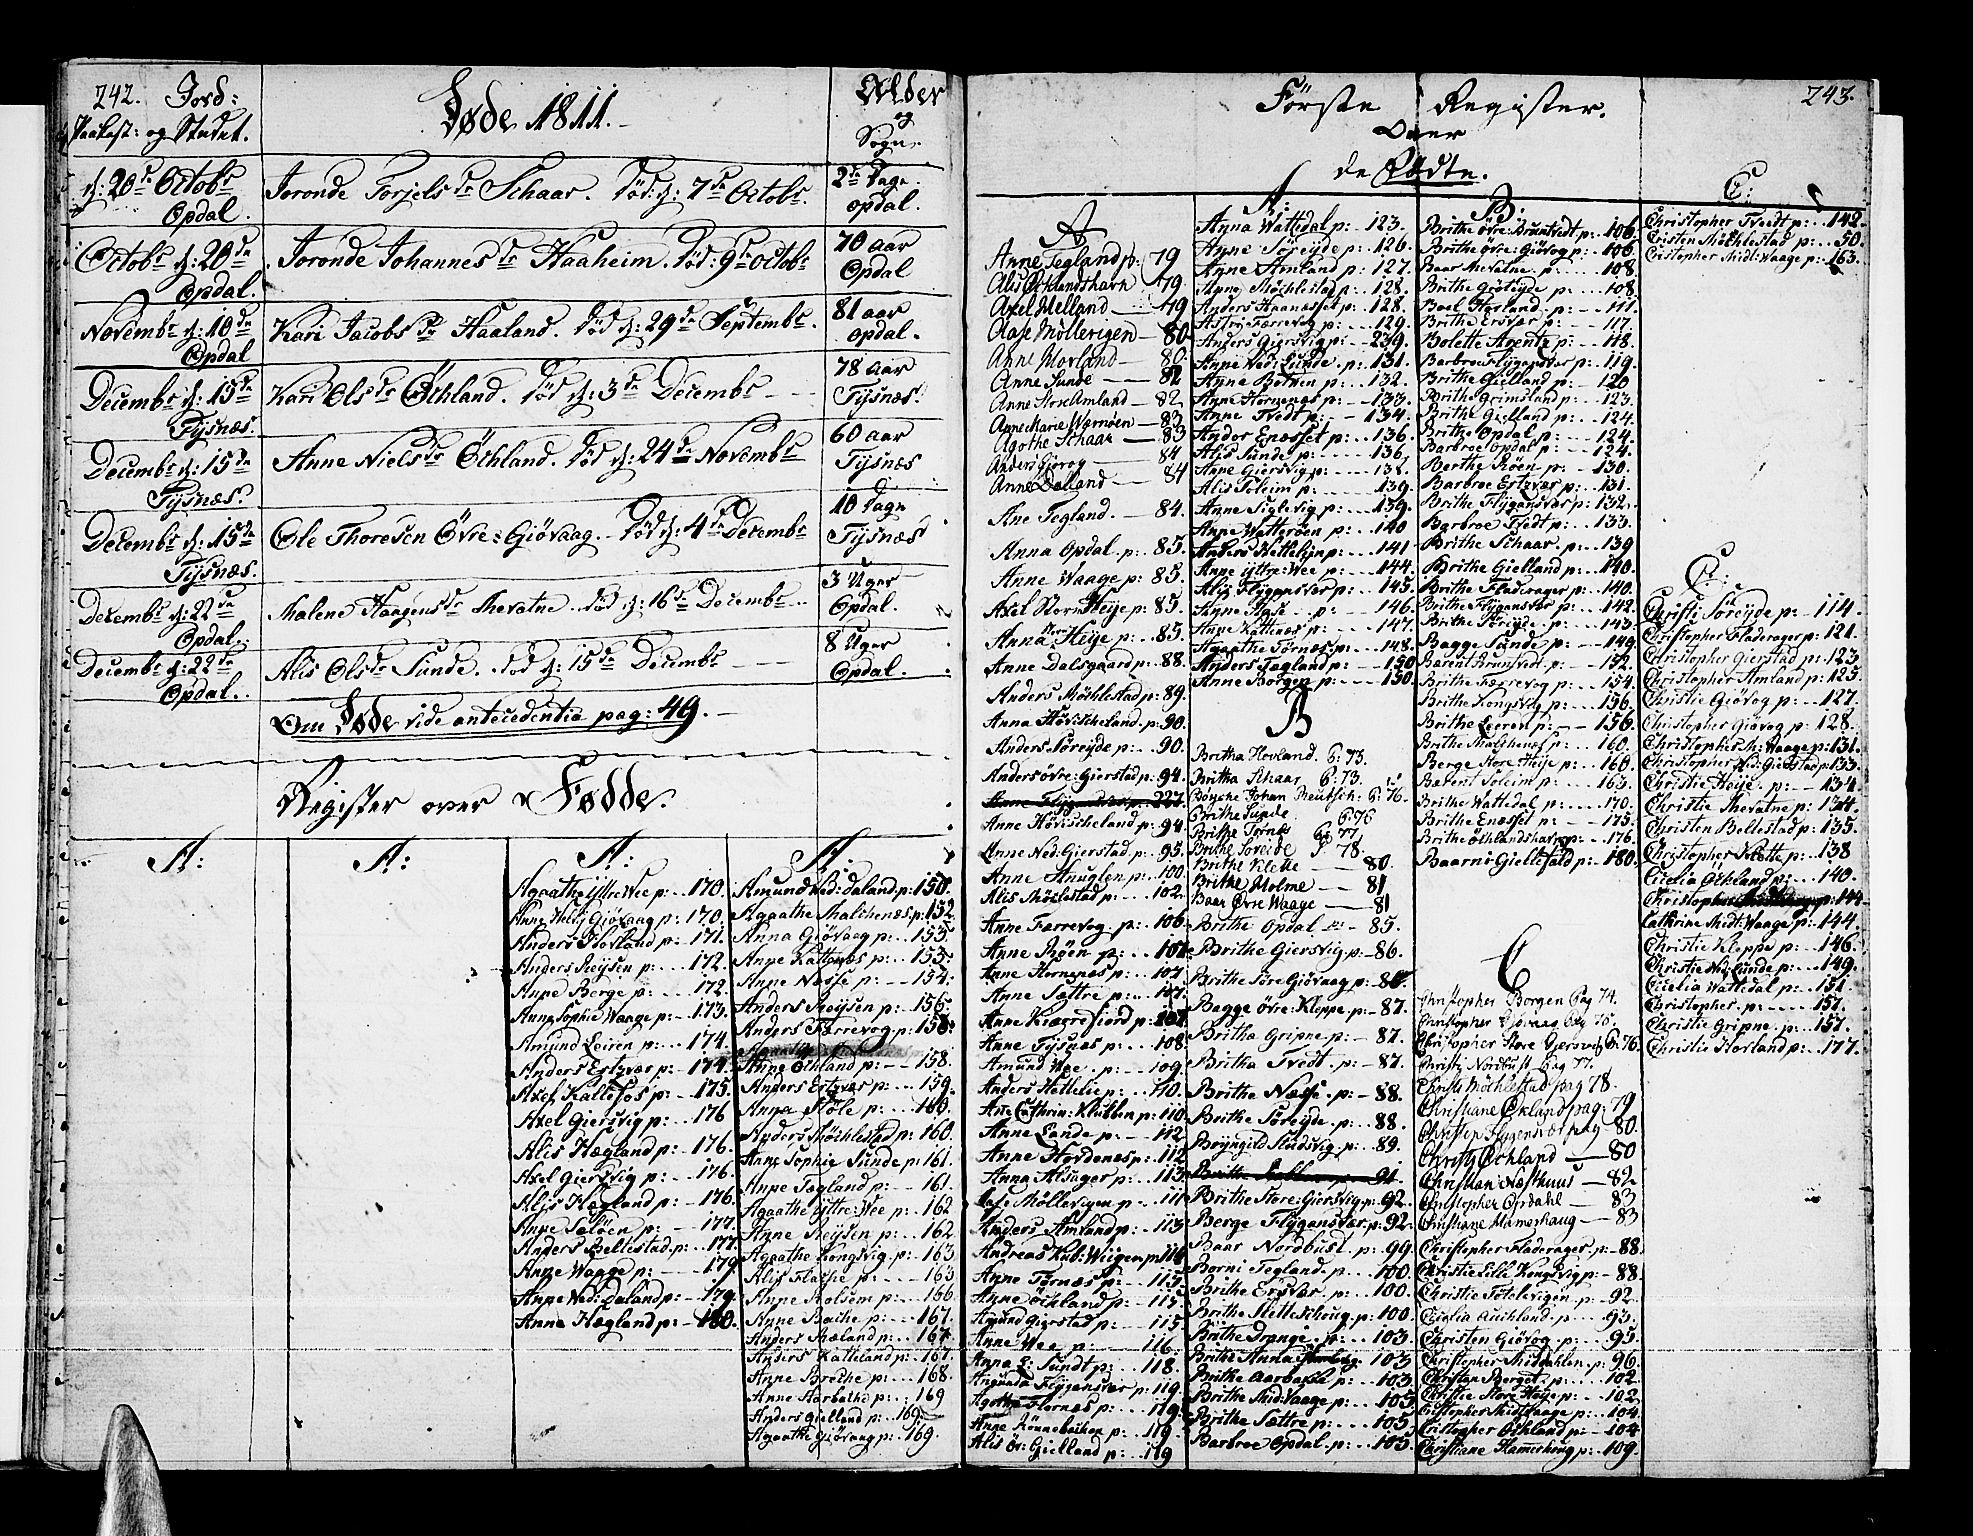 242. Jord:
Paakast: og Stedet.
Døde 1811.
Alder
og
Sogn.
d: 20de Octobr
Opdal.
Joronde Torjels dr Schaar. død: d: 7de Octobr.
2de Dage.
opdal.
Octobr d: 20de
Opdal.
Joronde Johannes dr Haaheim. død: 9de octobr
70 aar
Opdal
Novembr d: 10de
Opdal
Kari Jacobs dr Haaland. død d: 29de Septembr.
81 aar
opdal.
Decembr d: 15de
Tysnæs.
Kari Ols dr Öchland. død d: 3de Decembr
78 aar
Tysnæs.
Decembr d: 15de
Tysnæs.
Anne Niels dr Öchland. død d: 24de Novembr
60 aar
Tysnæs
Decembr d: 15de
Tysnæs.
Ole Thoresen Övre: Giövaag. død d: 4de Decembr
10 Dage
Tysnæs
Decembr d: 22de
Opdal.
Malene Haagens dr Thevatne. død d: 16de Decembr
3 Uger
Opdal.
Decembr d: 22de
Opdal.
Alis Ols dr Sunde. død d: 15de Decembr
8 Uger
Opdal.
Om Døde vide antecedentia pag: 49.
Register over Fødde.
A:
A:
A:
Agaathe yttre Wee p: 170.
Anne Giövaag p: 170.
Anders Hovland p: 171.
Anders Reysen p: 172.
Anne Berge p: 172.
Anne Sophie Waage p: 173.
Amund Leiren p: 174.
Anders Ertzvær p: 174.
Axel Kattefos p: 175.
Axel Giersvig p: 176
Alis Hægland p: 176.
Axel Giersvig p: 176
Alis Hægland p: 176.
Anne p: 177.
Anders Bellestad p: 177.
Anne Waage p: 179.
Anne Ned: Daland p: 179.
Anne Hægland p: 180.
A:
Amund Ned: daland p: 150.
Agaathe Malchenæs p: 152.
Anna Giövaag p: 153.
Anne Kattenæs p: 153.
Anne Næsse p: 154.
Anders Reysen p: 156.
Anders Færrevog p: 158.
Anne Öchland p: 158.
Anders Ertzvær p: 159.
Anna Støle p: 160.
Anders Möchlestad p: 160.
Anne Sophie Sunde p: 161.
Anne Tægland p: 161.
Agaathe yttre: Wee p: 162
Anne Reysen p: 162
Agaathe Kongsvig p: 163
Alis p: 163
Anne Holsem p: 166
Anne Bache p: 167.
Anders Hæland p: 167.
Anders Katteland p: 167.
Anne Brethe p: 168.
Anne Aarbakke p: 169
Anders Gielland p: 169.
Agaathe Giövaag p: 169.
243.
Förste Register.
over
de Födte.
A
Anne Tegland p: 79
Alis Öchlandshavn 79
Axel Melland 79
Aase Möllevigen 80
Anne Hovland 80
Anne Sunde 82
Anne Store Amland 82
Anne Marie Wernöen 83
Agothe Schaar 83
Anders Gjerog 84
Anne Dalland 84
Ane Tegland. 84.
Anna Opdal p: 85.
Anne Waage p: 85.
Axel Store Heye p: 85.
Anna Store Heye p: 85.
Anne Dalsgaard p: 88.
Anders Möchlestad p: 89.
Anna Hövischeland p: 90.
Anders Söreyde p: 90.
Anders övre: Gierstad p: 94.
Anne Flygansvær p: 227
Anne Hövischeland p: 94
Anne Ned: Gierstad p: 95.
Anne Anuglen p: 100
Alis Möchlestad p: 102.
Anne Færrevog p: 106
Anne Röen p: 107
Anne Hornenæs p: 107
Anne Sættre p: 107
Anne Kiærrefiord p: 107
Anne Tysnæs p: 108.
Amund Wee p: 109
Anders Hettelie p: 110.
Ane Cathrin: Klubben p: 110
Anne Lande p: 112
Anne Hordenæs p: 112
Anna Alsager p: 113
Aase Möllevigen p: 11
Anders Amland p: 113
Andreas Kub: Wiigen p: 114
Anne Törnæs p: 115
Anne Öchland p: 115
Amund Gierstad p: 115
Anne Wee p: 116.
Anna S: Sundt p: 118.
Flygansvær p: 119
Agothe Hornæs p: 119
Anne Rönnebaken p: 119
Alis öv: Gielland p: 119
A:
Anna Wattedal p: 123.
Anne Söreyde p: 126.
Anne Amland p: 127.
Anne Möchlestad p: 128.
Anders Haanæsset p: 128.
Astri Færrevog p: 129.
Anders Giersvig p: 239.
Anne Ned: Lunde p: 131.
Anne Botnen p: 132.
Anne Hornenæs p: 133.
Anne Tvedt p: 134.
Ander Enæsset p: 136.
Alis Sunde p: 136.
Anne Giersvig p: 138.
Alis Soleim p: 139.
Anne Siglevig p: 139.
Anne Watteröen p: 140
Anders Hettelien p: 141
Anne yttre: Wee p: 144.
Alis Flygansvær p: 145.
Anne Aase p: 146.
Anne Kattenæs p: 147.
Agaathe Törnæs p: 148.
Anders Tægland p: 150
Anne Borgen p: 150.
B
Britha Hovland p: 73.
Britha Schaar p: 73.
Böyche Johan Reutsch: p: 76.
Brithe Sunde p: 76
Brithe Tornæs p: 77
Brithe Soreide p: 78.
Brithe Klette 80
Brithe Holme 81
Baar Övre Waage 81
Brithe Opdal 85.
Brithe Giersvig p: 86.
Brithe Söre Giövaag p: 86.
Bagge övre: Kleppe p: 87.
Britha Gripne p: 87.
Britha Tvedt p: 87.
Brithe Næsse p: 88.
Brithe Söreyde p: 88.
Bryngild Sindsvig p: 89.
Brithe p: 91
Brithe Store: Giersvig p: 92.
Berge Flygansvær p: 92.
Baar Nordbust p: 99.
Borni Tegland p: 100.
Brithe Ersvær p: 100.
Brithe p: 100.
Brithe Drange p: 103.
Brithe Anna 103
Brithe Aarbakke p: 103.
Brithe Mid: Waage p: 105
Brithe Sættre p: 105
Barbroe Opdal p: 105.
B.
Brithe övre: Bruntvedt p: 106.
Brithe övre: Giövog p: 106
Baar Thevatne p: 108
Brithe Gröteyde p: 108
Boel Hægland p: 111.
Brithe Ersvær p: 117
Bolette Arentz p: 118.
Barbroe Flygansvær p: 119.
Brithe Gielland p: 120
Brithe Grimsland p: 123.
Brithe Gielland p: 124.
Brithe Opdal p: 124.
Barbroe Opdal p: 124.
Berthe Röen p: 130.
Barbroe Ertzvær p: 131.
Brithe Flygansvær p: 132.
Barbroe Tvedt p: 133.
Brithe Schaar p: 139
Brithe Gielland p: 140
Brithe Fladerager p: 140.
Brithe Flygansvær p: 142.
Brithe Söreyde p: 143.
Bagge Sunde p: 149.
Bærent Bruntvedt p: 152.
Brithe Færrevog p: 154.
Brithe Kongsvig p: 156.
Brithe Leeren p: 156.
Brithe Malchenæs p: 160.
Berge Store Heye p: 160.
Bærent Soleim p: 163.
Brithe Wattedal p: 170.
Brithe Enæsset p: 175.
Brithe Öchlandshavn p: 176.
Baarni Giellefald p: 180.
C
Christopher Borgen Pag 74.
Christopher Gjövaag Pag 75.
Christopher Store Gjersvig p: 76.
Christi Nordbust Pag 77.
Christi Möchlestad pag 78.
Christiane Öchland pag: 79
Christen Flygensvær pag 80.
Christi Öchland 80
Christian Næsthuus 82
Christopher Opdahl 83
Christiane Hamerhaug 83
Christopher Fladerager p: 88.
Christie Lille Kongsvig p: 88.
Christie Tötelevigen p: 92.
Cicelia Auchland p: 93.
Christen Giövog p: 95.
Christopher Middahlen p: 96.
Christen Berget p: 102.
Christie Store Heye p: 102
Cristopher Midt Waage p: 104
Cristopher Öchland p: 104
Christiane Hamerhoug p: 109.
C:
Christopher Tvedt p: 142.
Cristen Möchlestad p: 50.
Cristopher Mid: Waage p: 163.
C:
Christi Söreyde p: 114.
Christopher Fladerager p: 121.
Christopher Gierstad p: 123
Christopher Amland p: 125
Christie Giövog p: 127.
Christopher Giövog p: 128.
Christopher M: Waage p: 131.
Christopher Ned: Gierstad p: 133.
Christie Heye p: 134
Christie Thevatne p: 134.
Christen Bellestad p: 135.
Christopher Klette p: 138
Cicelia Öchland p: 140.
Christopher p: 144
Cathrine Midt: Waage p: 144.
Christie Kleppe p: 146.
Christie Ned: Lunde p: 149.
Cicelia Wattedal p: 151.
Christopher p: 157.
Christie Gripne p: 157.
Christie Hovland p: 177.